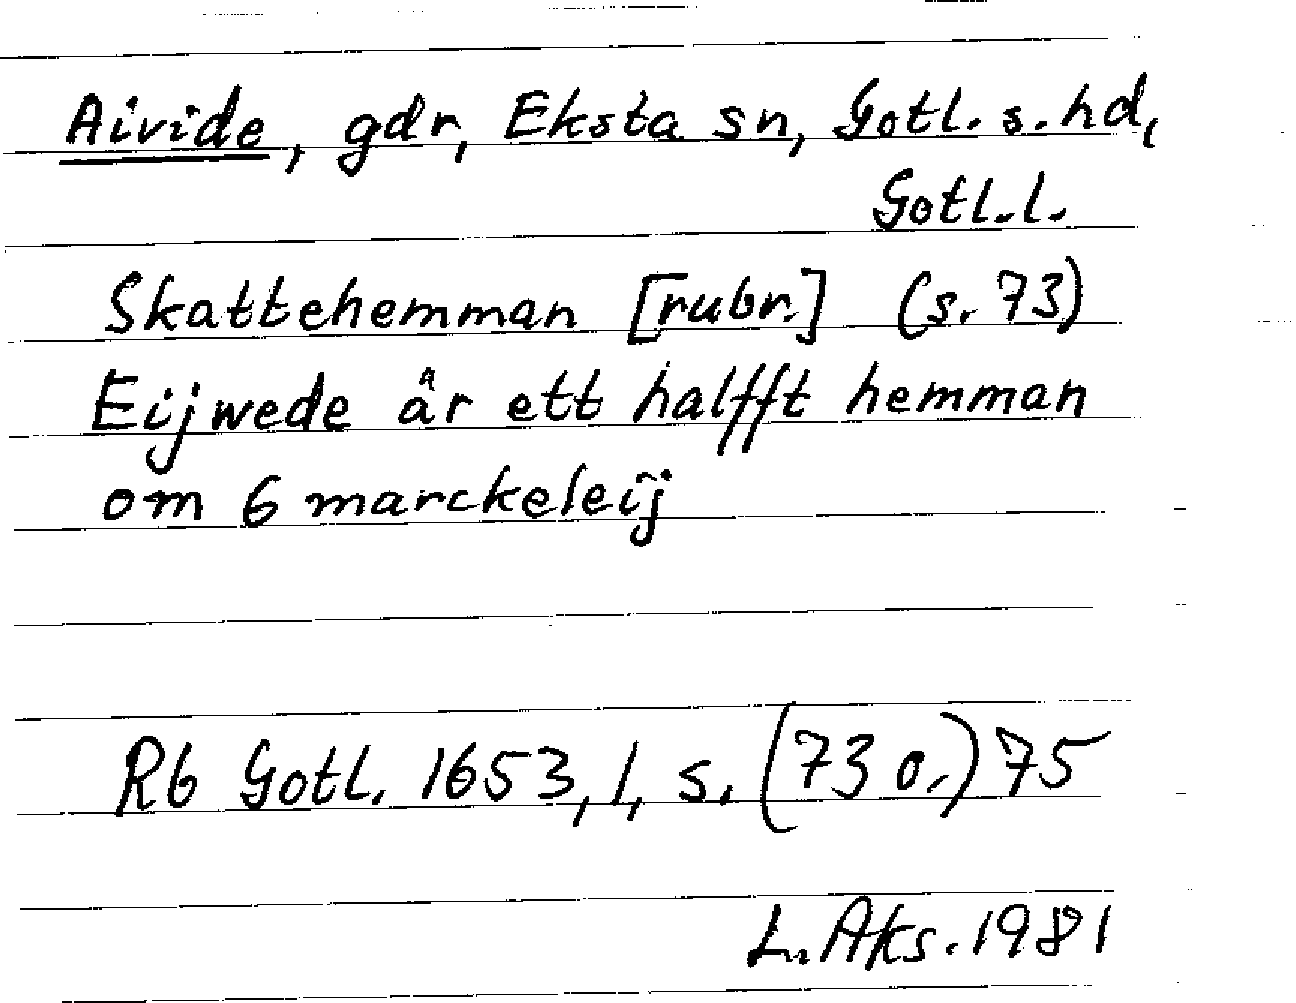 Aivide, gdr, Eksta sn, Gotl. s. hd,
Gotl. l.
Skattehemman [rubr.] (s. 73)
Eijwede är ett halfft hemman
om 6 marckeleij
Rb Gotl. 1653, 1, s. (73 o.) 75
L. Aks. 1981